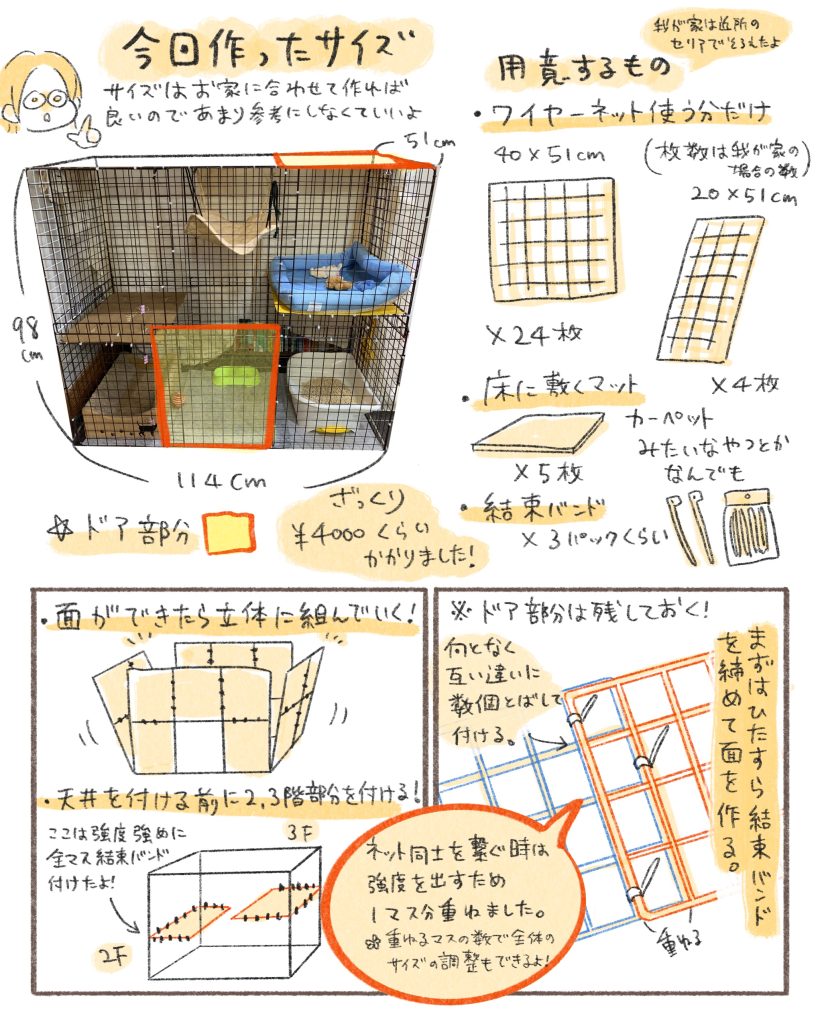 今回作ったサイズ
サイズはお家に合わせて作れば
良いのであまり参考にしなくていいよ
51cm
98
cm
114cm
☆ドア部分
ざっくり
¥4000くらい
かかりました!
我が家は近所の
セリアでそろえたよ
用意するもの
・ワイヤーネット使う分だけ
40×51cm
(枚数は我が家の
場合の数)
20×51cm
×24枚
×4枚
・床に敷くマット
カーペット
みたいなやつとか
なんでも
×5枚
・結束バンド
×3パックくらい
・面ができたら立体に組んでいく!
・天井を付ける前に2,3階部分を付ける!
ここは強度強めに
全マス結束バンド
付けたよ!
3F
2F
※ドア部分は残しておく!
まずはひたすら結束バンド
を締めて面を作る。
何となく
互い違いに
数個とばして
付ける。
重ねる
ネット同士を繋ぐ時は
強度を出すため
1マス分重ねました。
※重ねるマスの数で全体の
サイズの調整もできるよ!